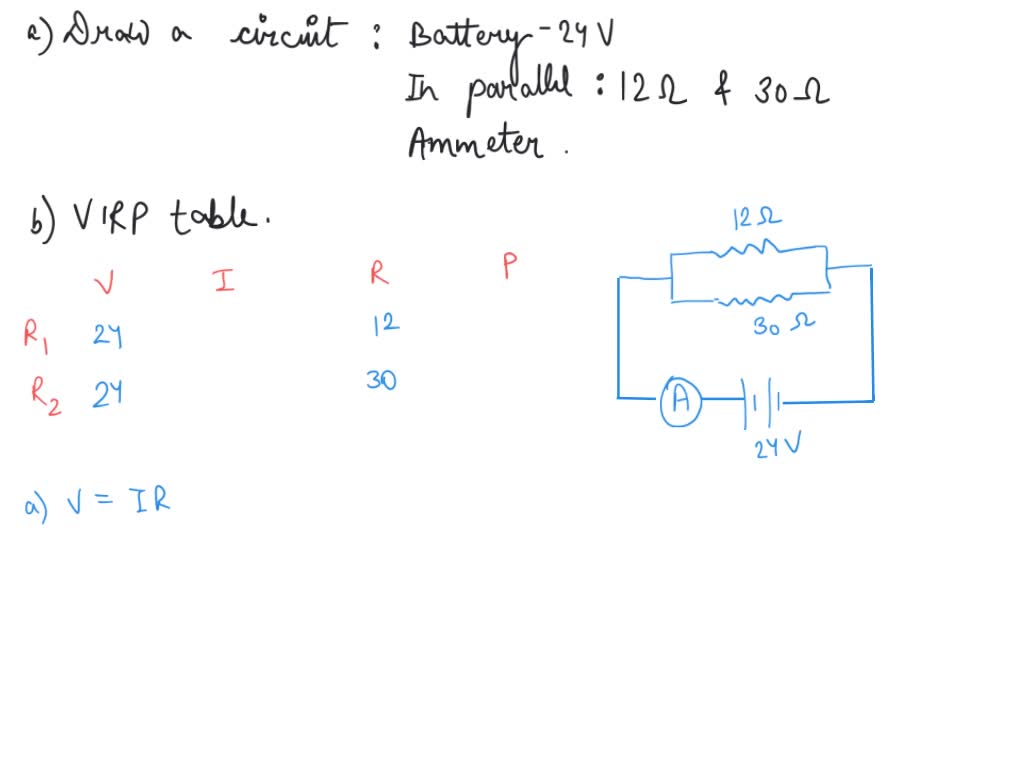 a) Draw a circuit : Battery - 24 V
In parallel : 12 Ω & 30 Ω
Ammeter .
b) VIRP table.
V I R P
R1 24 12
R2 24 30
12 Ω
30 Ω
A
24 V
a) V = IR